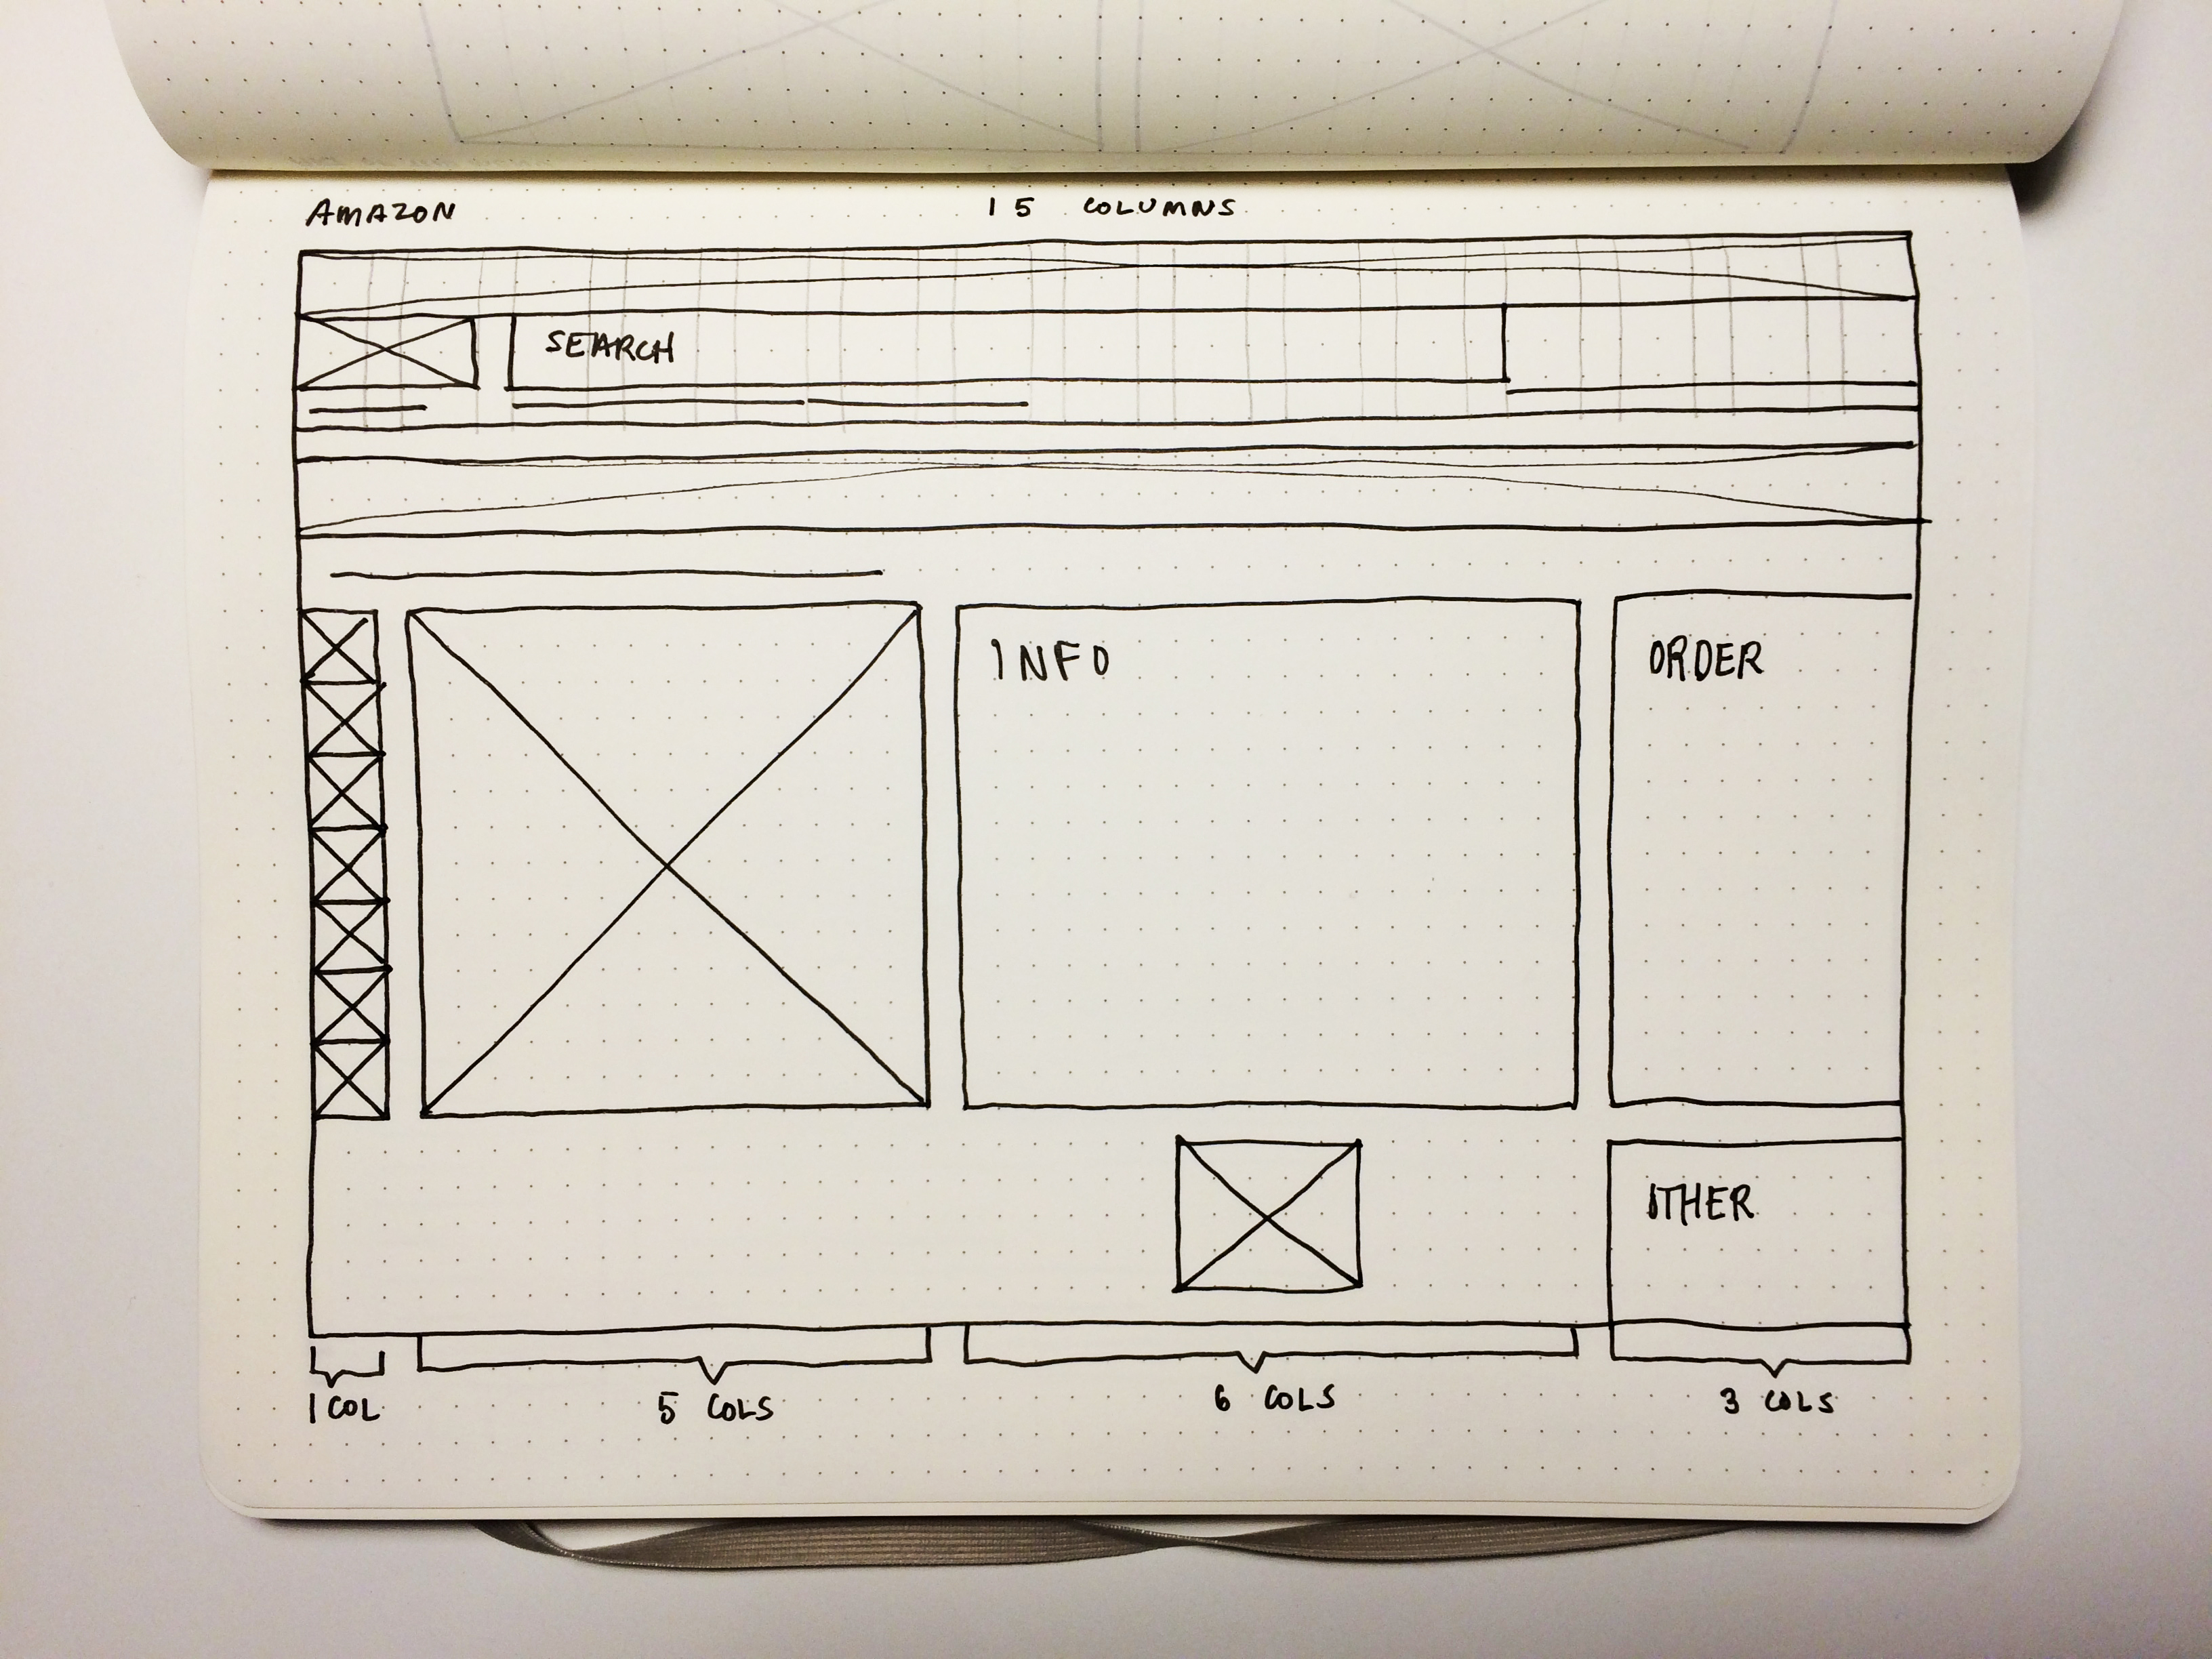 AMAZON
15 COLUMNS
SEARCH
INFO
ORDER
OTHER
1 COL
5 COLS
6 COLS
3 COLS